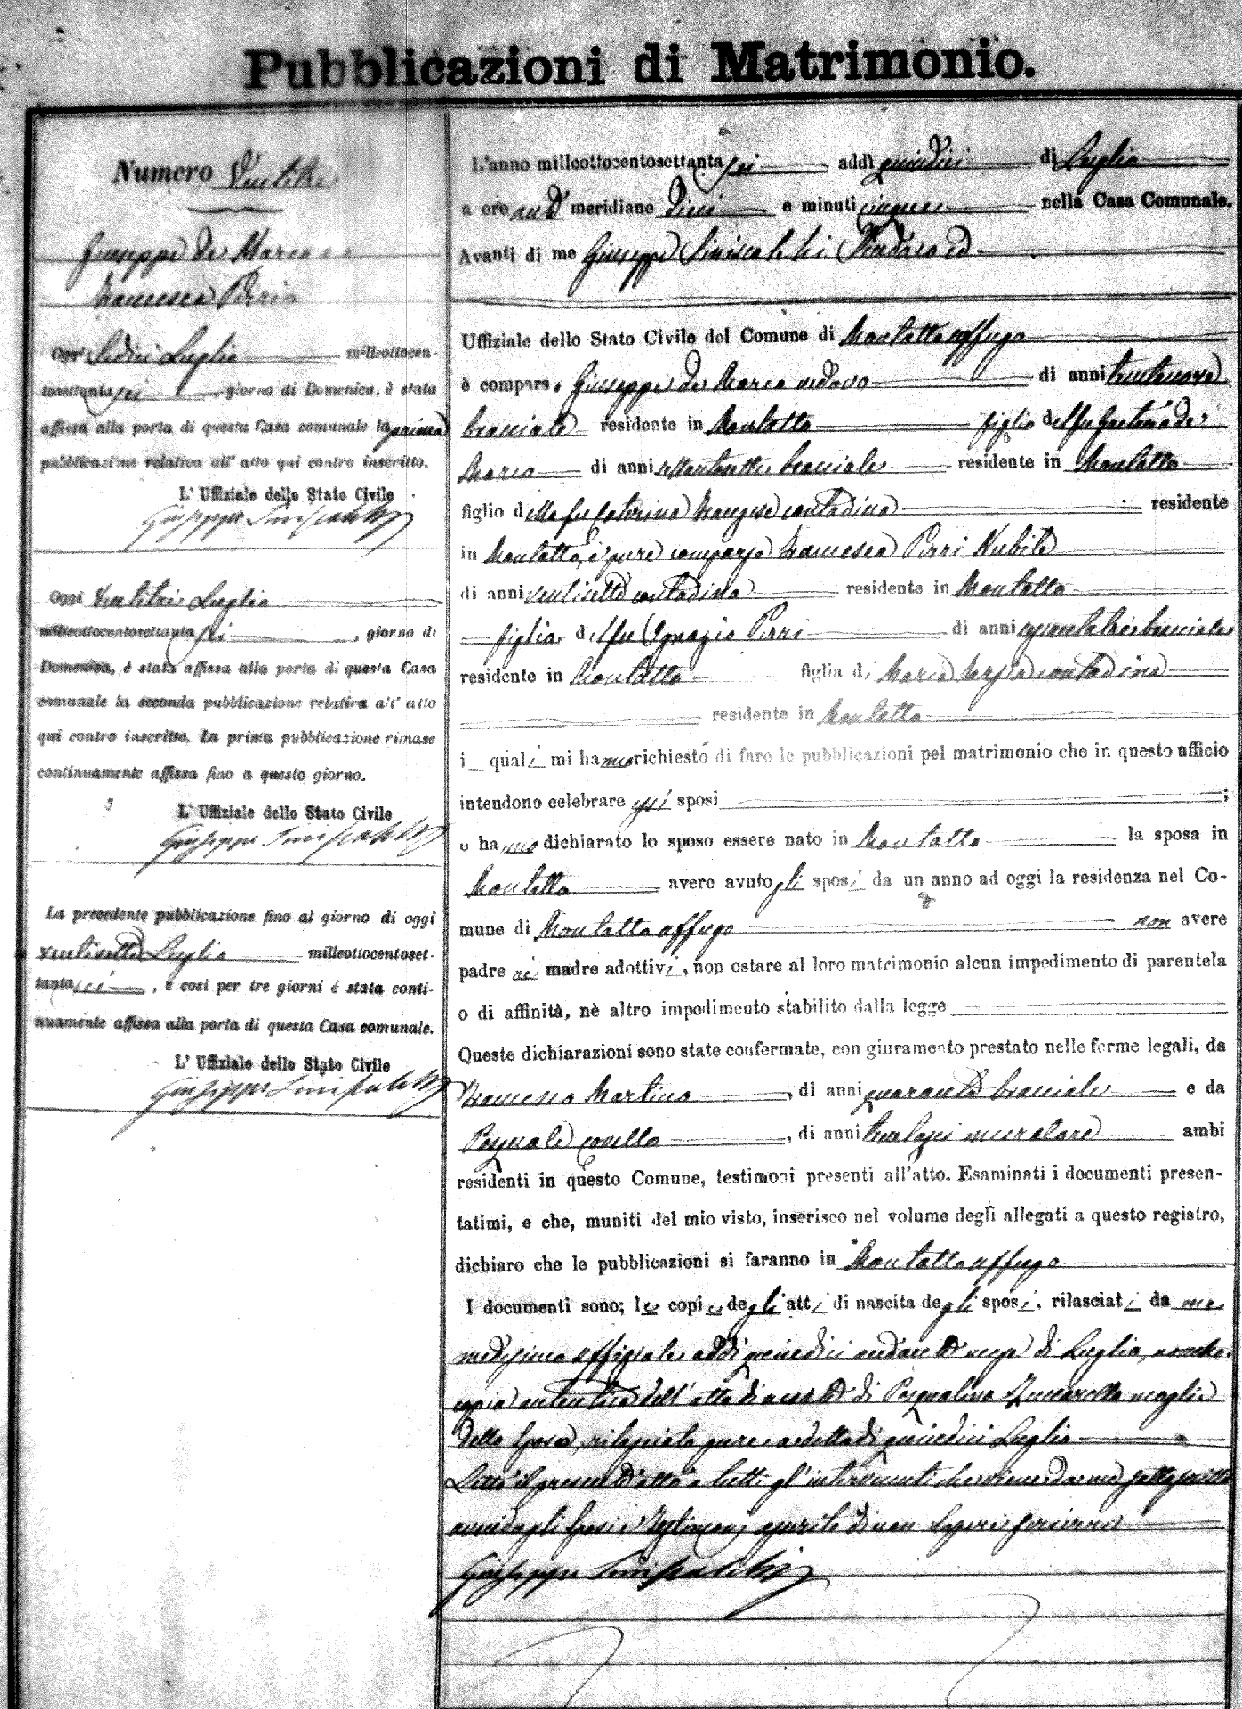 Pubblicazioni di Matrimonio.
Numero
Giuseppe de Marco
Francesca Pirri
Oggi Sedici Luglio millottocen-
tosettanta sei giorno di Domenica, è stata
affissa alla porta di questa Casa comunale la prima
pubblicazione relativa all' atto qui contro inscritto.
L' Uffiziale dello Stato Civile
Giuseppe Siniscalchi
Oggi Ventitrè Luglio
millottocentosettanta sei, giorno di
Domenica, è stata affissa alla porta di questa Casa
comunale la seconda pubblicazione relativa all' atto
qui contro inscritto. La prima pubblicazione rimase
continuamente affissa fino a questo giorno.
L' Uffiziale dello Stato Civile
Giuseppe Siniscalchi
La precedente pubblicazione fino al giorno di oggi
ventisette Luglio millottocentoset-
tanta sei, e così per tre giorni è stata conti-
nuamente affissa alla porta di questa Casa comunale.
L' Uffiziale dello Stato Civile
Giuseppe Siniscalchi
L'anno milleottocentosettanta sei addì quindici di Luglio
a ore meridiane dieci e minuti cinque nella Casa Comunale.
Avanti di me Giuseppe Siniscalchi Sindaco ed
Uffiziale dello Stato Civile del Comune di Montaltouffugo
è comparso Giuseppe de Marco vedovo di anni trentanove
bracciale residente in Montalto figlio del fu Gaetano de
Marco di anni bracciale residente in Montalto
figlio della fu Caterina contadina residente
in Montalto, è pure comparsa Francesca Pirri Nubile
di anni ventisette contadina residente in Montalto
figlia del fu Ignazio Pirri di anni bracciale
residente in Montalto figlia di Maria contadina
residente in Montalto
i quali mi hanno richiesto di fare le pubblicazioni pel matrimonio che in questo ufficio
intendono celebrare essi sposi ;
e hanno dichiarato lo sposo essere nato in Montalto la sposa in
Montalto avere avuto gli sposi da un anno ad oggi la residenza nel Co-
mune di Montaltouffugo non avere
padre nè madre adottivi, non ostare al loro matrimonio alcun impedimento di parentela
o di affinità, nè altro impedimento stabilito dalla legge
Queste dichiarazioni sono state confermate, con giuramento prestato nelle forme legali, da
Francesco Martino, di anni quaranta bracciale e da
Pasquale, di anni ambi
residenti in questo Comune, testimoni presenti all'atto. Esaminati i documenti presen-
tatimi, e che, muniti del mio visto, inserisco nel volume degli allegati a questo registro,
dichiaro che le pubblicazioni si faranno in Montaltouffugo
I documenti sono; le copie degli atti di nascita degli sposi, rilasciati da me
medesimo uffiziale addì quindici andante mese di Luglio, nonchè
copia autentica dell' atto di morte di Pasqualina moglie
dello Sposo, rilasciata pure a dì quindici Luglio
Letto il presente atto a tutti gl'intervenuti che viene da me sottoscritto
avendo gli Sposi e Testimoni di non sapere scrivere
Giuseppe Siniscalchi